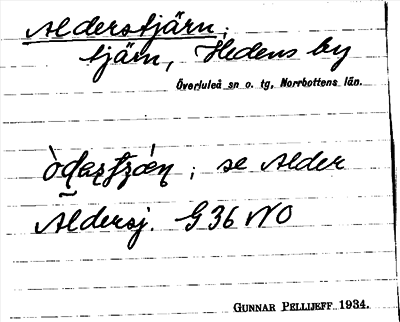 Alderstjärn;
tjärn, Hedens by
Överluleå sn o. tg, Norrbottens län.
; se Alder
Aldersj. G36 NO
GUNNAR PELLIJEFF 1934.